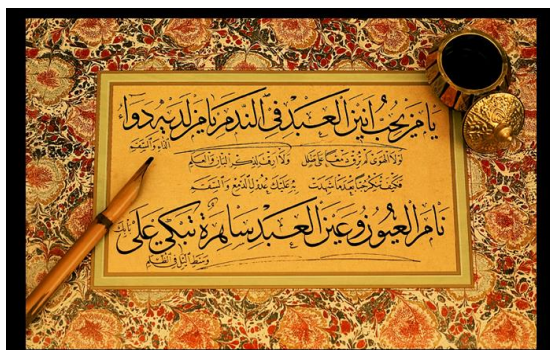 يا من يحب انين العبد في الندم يا من لديه دواء
الداء والسقم
لولا الهوى لم ترق دمعا على طلل ولا ارقت لذكر البان والعلم
فكيف تنكر حبا بعد ما شهدت به عليك عدول الدمع والسقم
نام العيون وعين العبد ساهرة تبكي على بابك
وسط الليل في الظلم